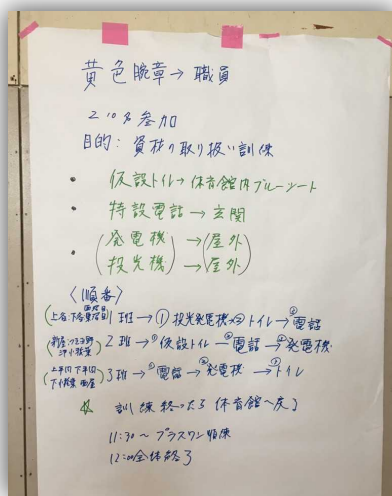 黄色腕章→職員
210名参加
目的：資材の取り扱い訓練
・ 仮設トイレ→体育館内ブルーシート
・ 特設電話→玄関
・ (発電機)→(屋外)
(投光機)→(屋外)
〈順番〉
1班→①投光発電機→②トイレ→③電話
2班→①仮設トイレ→②電話→③発電機
3班→①電話→②発電機→③トイレ
☆ 訓練終ったら体育館へ戻る
11:30～プラスワン訓練
12:00全体終了